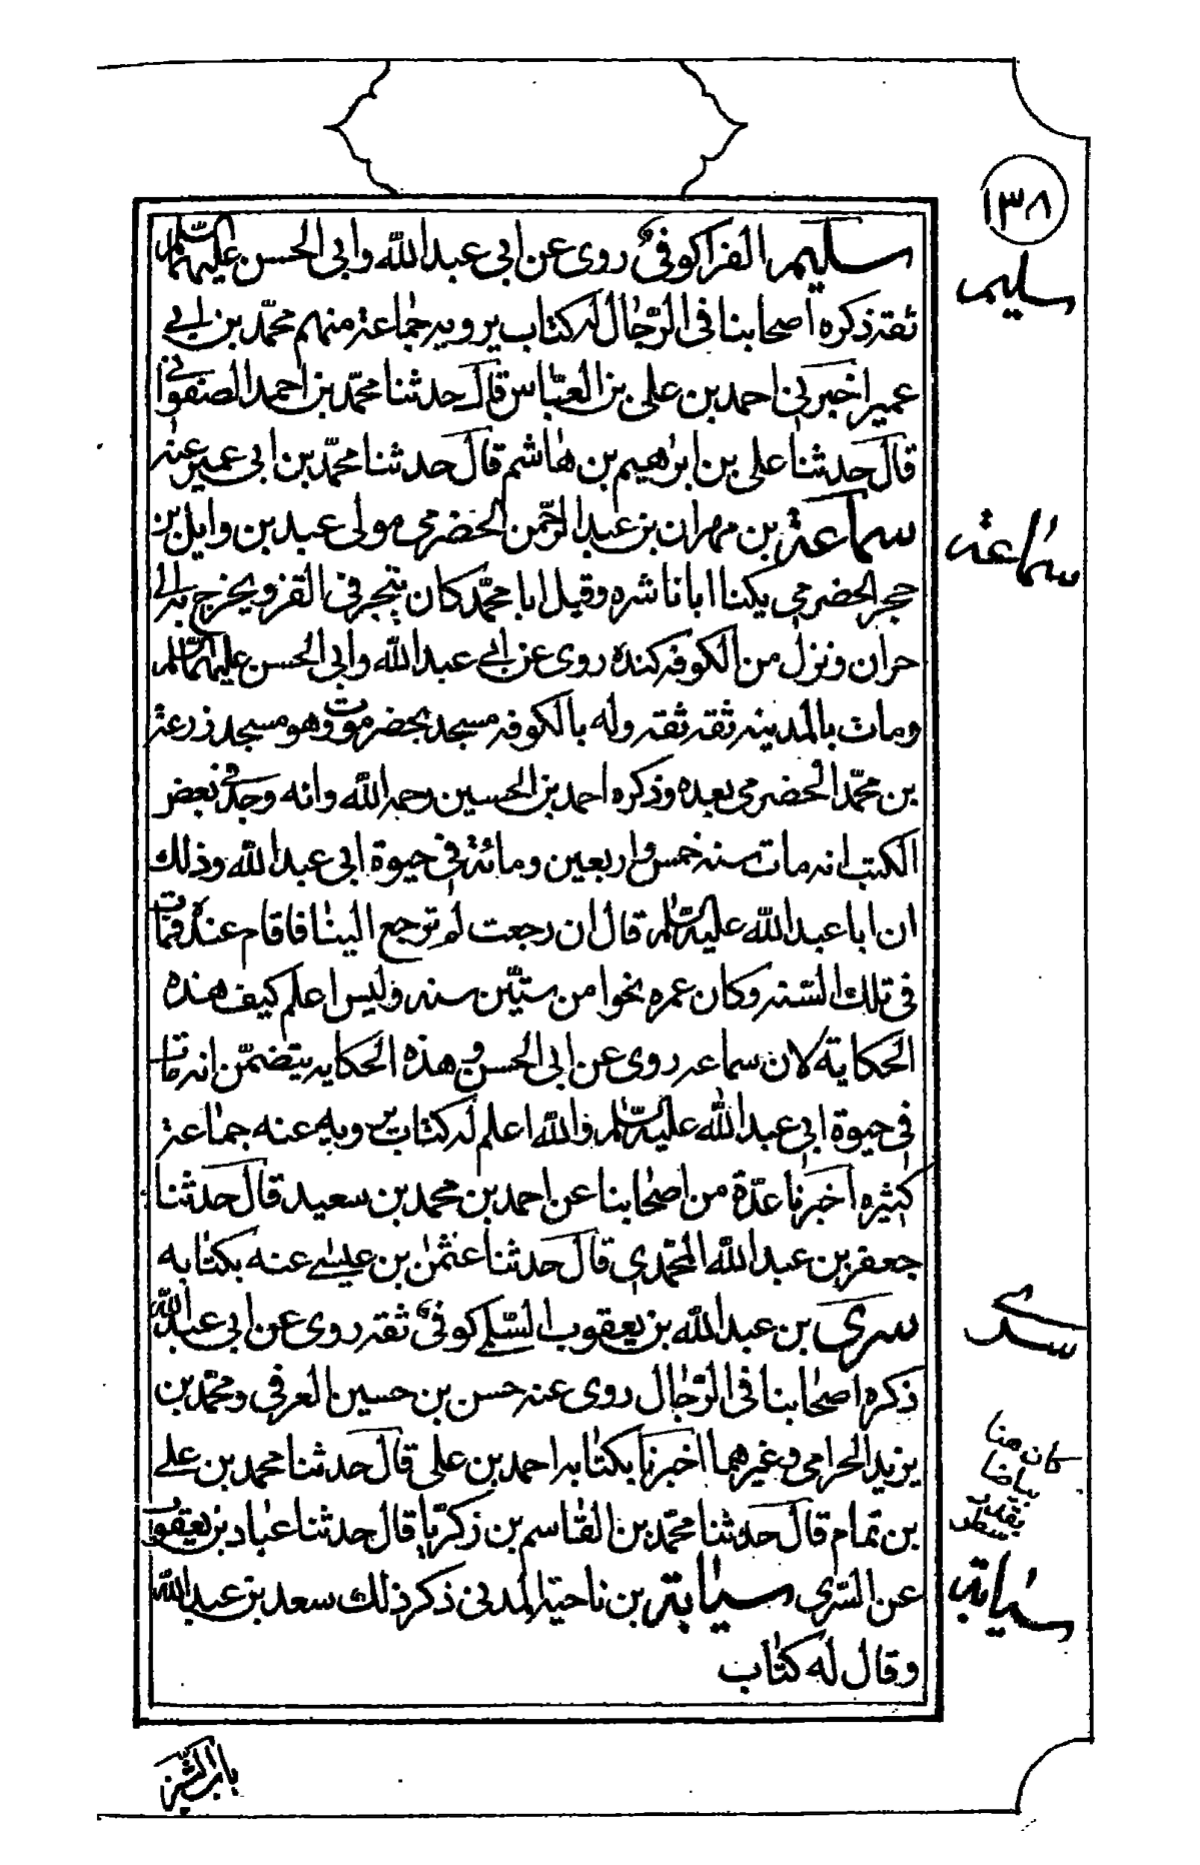 ١٣٨
سليم الفرا كوفيّ روى عن ابي عبد الله وابي الحسن عليهما السّلم
ثقه ذكره اصحابنا فى الرّجال له كتاب يرويه جماعة منهم محمّد بن ابي
عمير اخبرنى احمد بن على بن العبّاس قال حدثنا محمّد بن احمد الصفوانى
قال حدثنا على بن ابرهيم بن هاشم قال حدثنا محمّد بن ابى عمير عنه
سماعة بن مهران بن عبد الرّحمن الحضرمى مولى عبد بن وايل بن
حجر الحضرمى يكنا ابا ناشره وقيل ابا محمّد كان يتجر فى القز ويخرج به الى
حران ونزل من الكوفه كنده روى عن ابي عبد الله وابى الحسن عليهما السّلم
ومات بالمدينه ثقه ثقه وله بالكوفه مسجد بحضرموت وهو مسجد زرعة
بن محمّد الحضرمى بعده وذكره احمد بن الحسين رحمه الله وانه وجد فى بعض
الكتب انه مات سنه خمس واربعين ومائة فى حيوة ابى عبد الله وذلك
ان ابا عبد الله عليه السّلم قال ان رجعت لم ترجع الينا فاقام عنده فمات
فى تلك السّنه وكان عمره نحوا من ستّين سنه وليس اعلم كيف هذه
الحكاية لان سماعه روى عن ابى الحسن وهذه الحكايه يتضمّن انه مات
فى حيوة ابى عبد الله عليه السّلم والله اعلم له كتاب يرويه عنه جماعة
كثيره اخبرنا عدّة من اصحابنا عن احمد بن محمد بن سعيد قال حدثنا
جعفر بن عبد الله المحمّدى قال حدثنا عثمن بن عيسى عنه بكتابه
سرى بن عبد الله بن يعقوب السّلمى كوفىّ ثقه روى عن ابى عبد الله
ذكره اصحابنا فى الرّجال روى عنه حسن بن حسين العرفى ومحمّد بن
يزيد الحرامى وغيرهما اخبرنا بكتابه احمد بن على قال حدثنا محمد بن على
بن تمام قال حدثنا محمّد بن القاسم بن زكريّا قال حدثنا عباد بن يعقوب
عن السّرى سيابة بن ناحية المدنى ذكر ذلك سعد بن عبد الله
وقال له كتاب
سليم
سماعة
سرى
كان هنا
بياضا
بقدر
سطر
سيابة
باب الشين